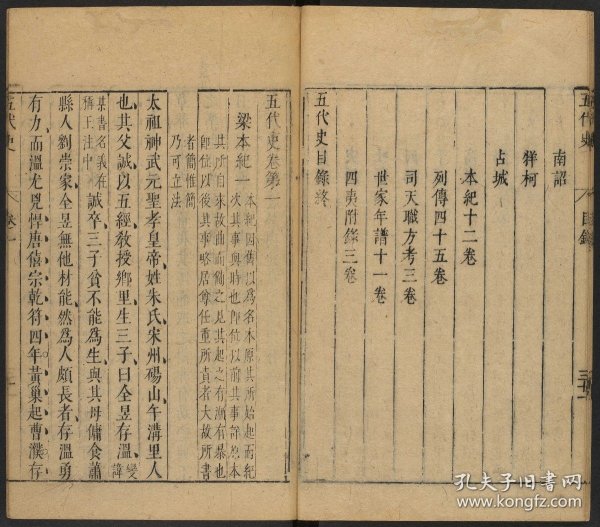 五代史 目錄
南詔
牂柯
占城
本紀十二卷
列傳四十五卷
司天職方考三卷
世家年譜十一卷
四夷附錄三卷
五代史目錄終
五代史卷第一
梁本紀一 本紀因舊以爲名本原其所始起而紀
次其事與時也即位以前其事詳原本
其所自來故曲而備之見其起之有漸有暴也
即位以後其事略居尊任重所責者大故所書
者簡惟簡
乃可立法
太祖神武元聖孝皇帝姓朱氏宋州碭山午溝里人
也其父誠以五經教授鄉里生三子曰全昱存溫 變諱
某書名義在
稱王注中 誠卒三子貧不能爲生與其母傭食蕭
縣人劉崇家全昱無他材能然爲人頗長者存溫勇
有力而溫尤兇悍唐僖宗乾符四年黃巢起曹濮存
五代史 卷一
孔夫子旧书网
www.kongfz.com